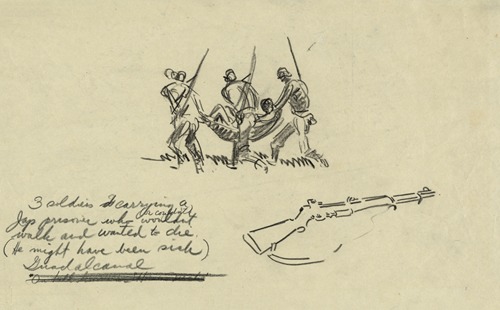 3 soldies carrying a
Jap prisoner who wouldnt
or couldnt
walk and wanted to die.
(He might have been sick)
Guadalcanal